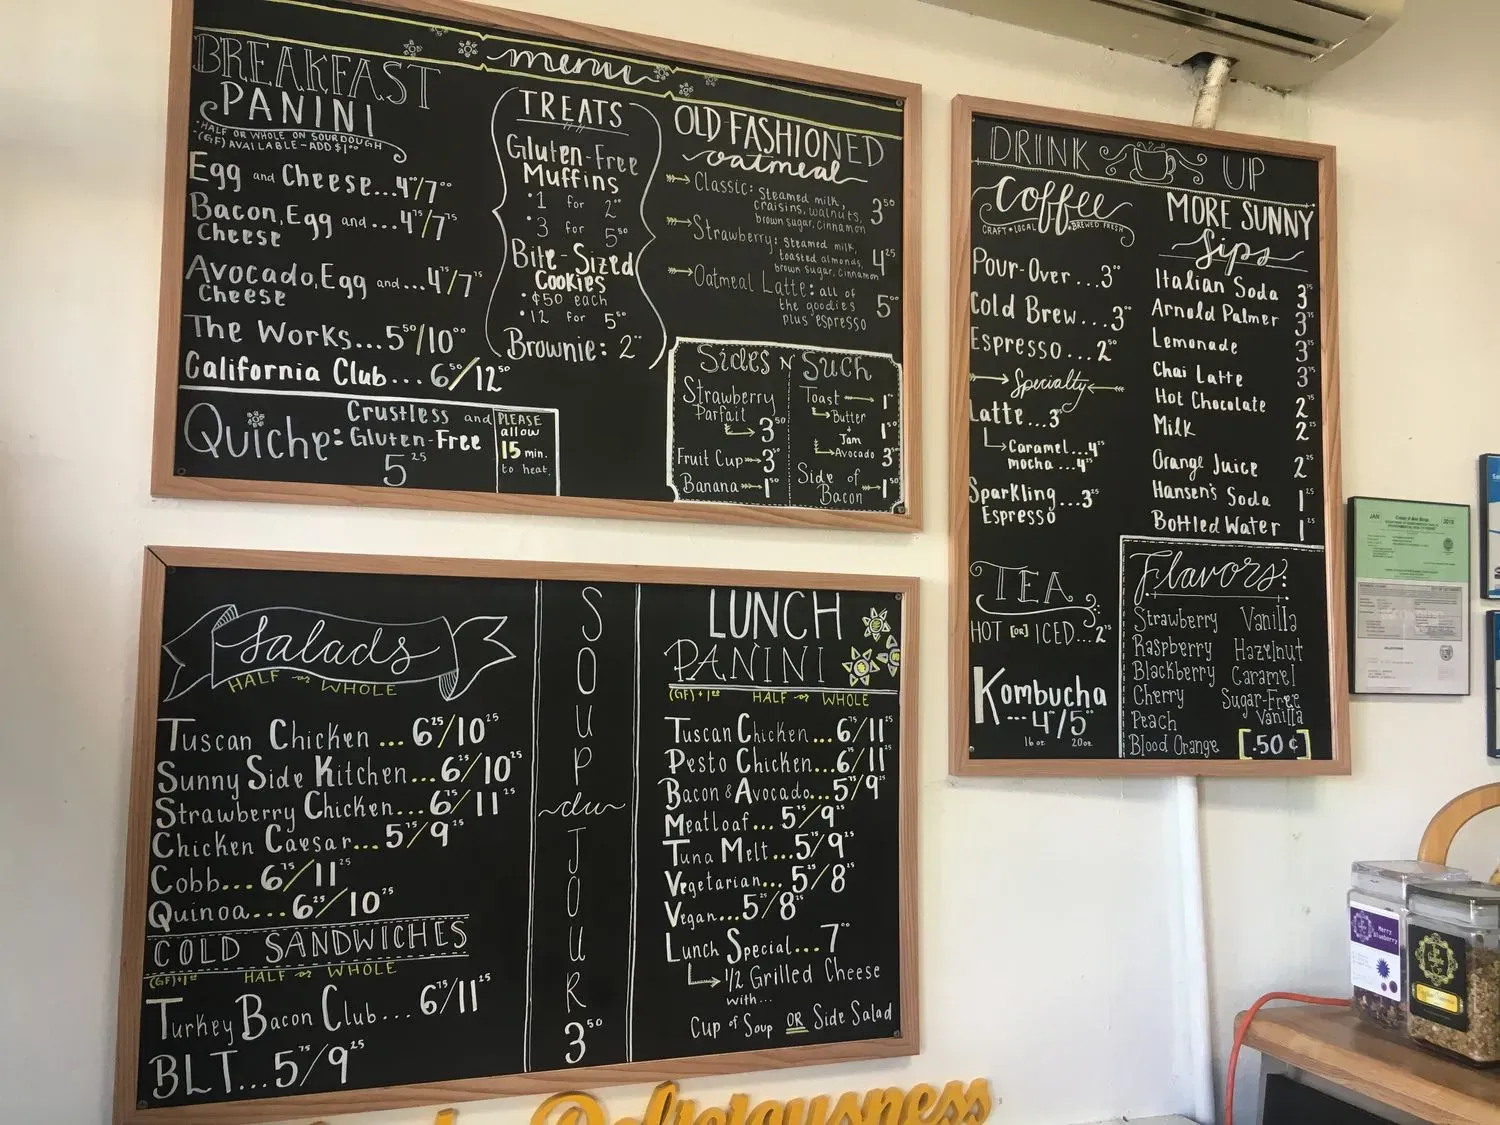 menu
BREAKFAST
PANINI
• HALF OR WHOLE ON SOURDOUGH
• (GF) AVAILABLE - ADD $1⁰⁰
Egg and Cheese...4⁰⁰/7⁰⁰
Bacon, Egg and...4⁷⁵/7⁷⁵
Cheese
Avocado, Egg and...4⁷⁵/7⁷⁵
Cheese
The Works...5⁵⁰/10⁰⁰
California Club...6⁵⁰/12⁵⁰
Quiche:
Crustless and
Gluten-Free
5²⁵
PLEASE
allow
15 min.
to heat.
TREATS
Gluten-Free
Muffins
• 1 for 2⁰⁰
• 3 for 5⁵⁰
Bite-Sized
Cookies
• ¢50 each
• 12 for 5⁵⁰
Brownie: 2⁰⁰
OLD FASHIONED
oatmeal
Classic: Steamed milk, 3⁵⁰
craisins, walnuts,
brown sugar, cinnamon
Strawberry: Steamed milk, 4²⁵
toasted almonds,
brown sugar, cinnamon
Oatmeal Latte: all of 5⁰⁰
the goodies
plus espresso
Sides N Such
Strawberry
Parfait
3⁵⁰
Fruit Cup 3⁰⁰
Banana 1⁵⁰
Toast 1⁰⁰
Butter
Jam 1⁵⁰
Avocado 3⁰⁰
Side of
Bacon 1⁵⁰
DRINK UP
Coffee
CRAFT • LOCAL • BREWED FRESH
Pour-Over...3⁰⁰
Cold Brew...3⁰⁰
Espresso...2⁵⁰
Specialty
Latte...3
Caramel...4²⁵
mocha...4²⁵
Sparkling...3²⁵
Espresso
TEA
HOT [OR] ICED...2⁷⁵
Kombucha
...4/5
16 oz. 20oz.
MORE SUNNY
Sips
Italian Soda 3⁷⁵
Arnold Palmer 3⁷⁵
Lemonade 3⁷⁵
Chai Latte 3⁷⁵
Hot Chocolate 2⁷⁵
Milk 2²⁵
Orange Juice 2²⁵
Hansen's Soda 1²⁵
Bottled Water 1²⁵
Flavors:
Strawberry Vanilla
Raspberry Hazelnut
Blackberry Caramel
Cherry Sugar-Free
Peach Vanilla
Blood Orange [.50 ¢]
Salads
HALF or WHOLE
Tuscan Chicken...6²⁵/10²⁵
Sunny Side Kitchen...6²⁵/10²⁵
Strawberry Chicken...6⁷⁵/11²⁵
Chicken Caesar...5⁷⁵/9²⁵
Cobb...6⁷⁵/11²⁵
Quinoa...6²⁵/10²⁵
COLD SANDWICHES
(GF)+1⁰⁰ HALF or WHOLE
Turkey Bacon Club...6⁷⁵/11²⁵
BLT...5⁷⁵/9²⁵
SOUP
du
JOUR
3⁵⁰
LUNCH
PANINI
(GF)+1⁰⁰ HALF or WHOLE
Tuscan Chicken...6⁷⁵/11²⁵
Pesto Chicken...6⁷⁵/11²⁵
Bacon & Avocado...5⁷⁵/9²⁵
Meatloaf...5⁷⁵/9²⁵
Tuna Melt...5⁷⁵/9²⁵
Vegetarian...5²⁵/8²⁵
Vegan...5²⁵/8²⁵
Lunch Special...7⁰⁰
1/2 Grilled Cheese
with...
Cup of Soup OR Side Salad
Deliciousness
JAN
2018
Merry
Blueberry